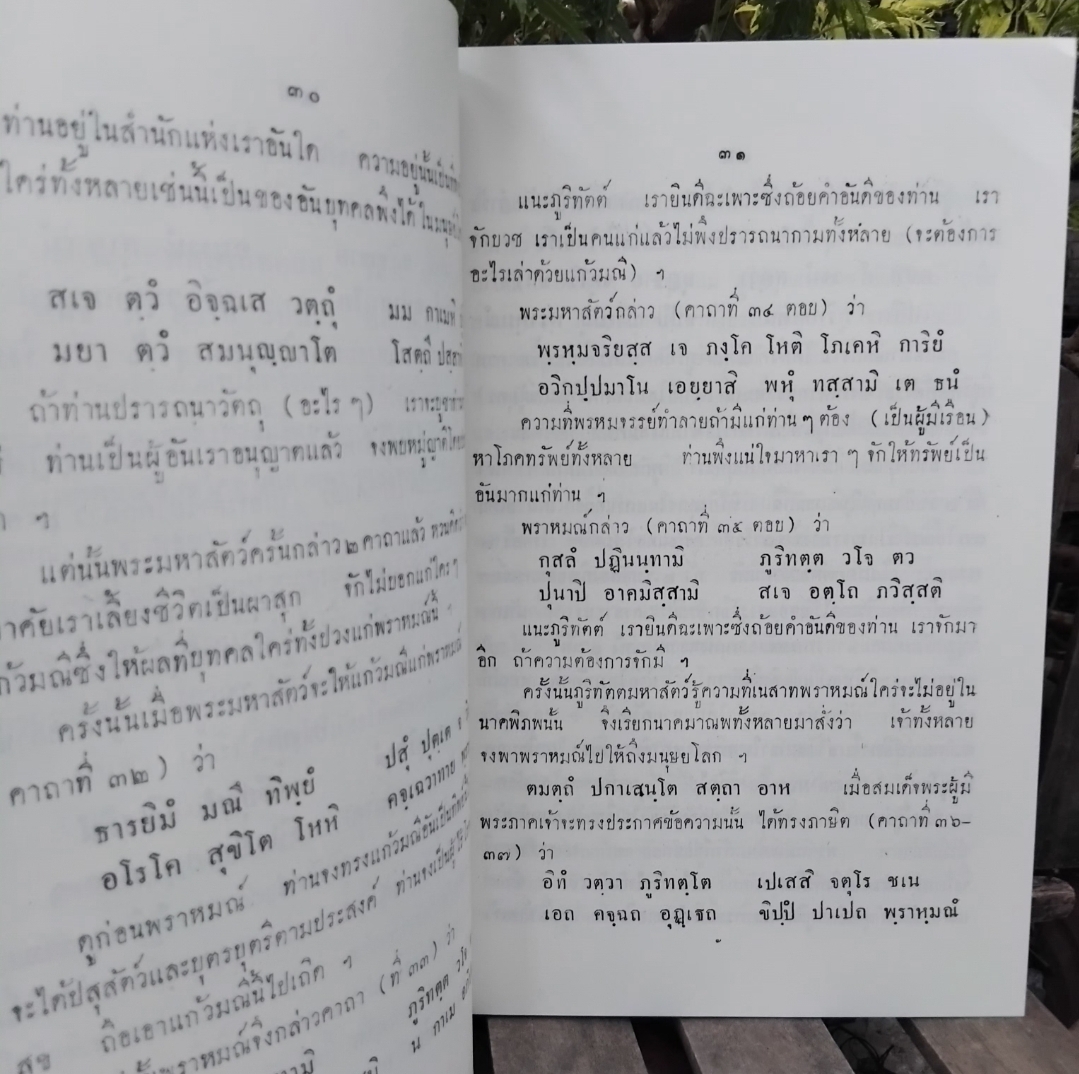 ๓๐
ท่านอยู่ในสำนักแห่งเราอันใด ความอยู่นั้นเป็น
ใคร่ทั้งหลายเช่นนี้เป็นของอันบุคคลพึงได้
สเจ ตฺวํ อิจฺฉเส วตฺถุํ มม กาเมหิ
มยา ตฺวํ สมนุญฺญาโต โสตฺถึ
ถ้าท่านปรารถนาวัตถุ (อะไร ๆ)
ท่านเป็นผู้อันเราอนุญาตแล้ว จงพบหมู่ญาติโดย
ๆ
แต่นั้นพระมหาสัตว์ครั้นกล่าว ๒ คาถาแล้ว
อาศัยเราเลี้ยงชีวิตเป็นผาสุก จักไม่บอกแก่ใคร ๆ
แก้วมณีซึ่งให้ผลที่บุคคลใคร่ทั้งปวงแก่พราหมณ์นี้ ฯ
ครั้งนั้นเมื่อพระมหาสัตว์จะให้แก้วมณีแก่พราหมณ์
คาถาที่ ๓๒) ว่า
ธารยิมํ มณึ ทิพฺยํ ปสุํ ปุตฺเต
อโรโค สุขิโต โหหิ คจฺเฉวาทาย
ดูก่อนพราหมณ์ ท่านจงทรงแก้วมณีอันเป็นทิพย์
จะได้ปสุสัตว์และบุตรบุตรีตามประสงค์ ท่านจงเป็นผู้
สุข ถือเอาแก้วมณีนี้ไปเถิด ฯ
พราหมณ์จึงกล่าวคาถา (ที่ ๓๓) ว่า
ภูริทตฺต
น กาเม
๓๑
แนะภูริทัตต์ เรายินดีฉะเพาะซึ่งถ้อยคำอันดีของท่าน เรา
จักบวช เราเป็นคนแก่แล้วไม่พึงปรารถนากามทั้งหลาย (จะต้องการ
อะไรเล่าด้วยแก้วมณี) ฯ
พระมหาสัตว์กล่าว (คาถาที่ ๓๔ ตอบ) ว่า
พฺรหฺมจริยสฺส เจ ภงฺโค โหติ โภเคหิ การิยํ
อวิกปฺปมาโน เอยฺยาสิ พหุํ ทสฺสามิ เต ธนํ
ความที่พรหมจรรย์ทำลายถ้ามีแก่ท่าน ๆ ต้อง (เป็นผู้มีเรือน)
หาโภคทรัพย์ทั้งหลาย ท่านพึงแน่ใจมาหาเรา ๆ จักให้ทรัพย์เป็น
อันมากแก่ท่าน ฯ
พราหมณ์กล่าว (คาถาที่ ๓๕ ตอบ) ว่า
กุสลํ ปฏินนฺทามิ ภูริทตฺต วโจ ตว
ปุนาปิ อาคมิสฺสามิ สเจ อตฺโถ ภวิสฺสติ
แนะภูริทัตต์ เรายินดีฉะเพาะซึ่งถ้อยคำอันดีของท่าน เราจักมา
อีก ถ้าความต้องการจักมี ฯ
ครั้งนั้นภูริทัตตมหาสัตว์รู้ความที่เนสาทพราหมณ์ใคร่จะไม่อยู่ใน
นาคพิภพนั้น จึงเรียกนาคมาณพทั้งหลายมาสั่งว่า เจ้าทั้งหลาย
จงพาพราหมณ์ไปให้ถึงมนุษยโลก ฯ
ตมตฺถํ ปกาเสนฺโต สตฺถา อาห เมื่อสมเด็จพระผู้มี
พระภาคเจ้าจะทรงประกาศข้อความนั้น ได้ทรงภาษิต (คาถาที่ ๓๖-
๓๗) ว่า
อิทํ วตฺวา ภูริทตฺโต เปเสสิ จตุโร ชเน
เอถ คจฺฉถ อุฏฺเฐถ ขิปฺปํ ปาเปถ พฺราหฺมณํ